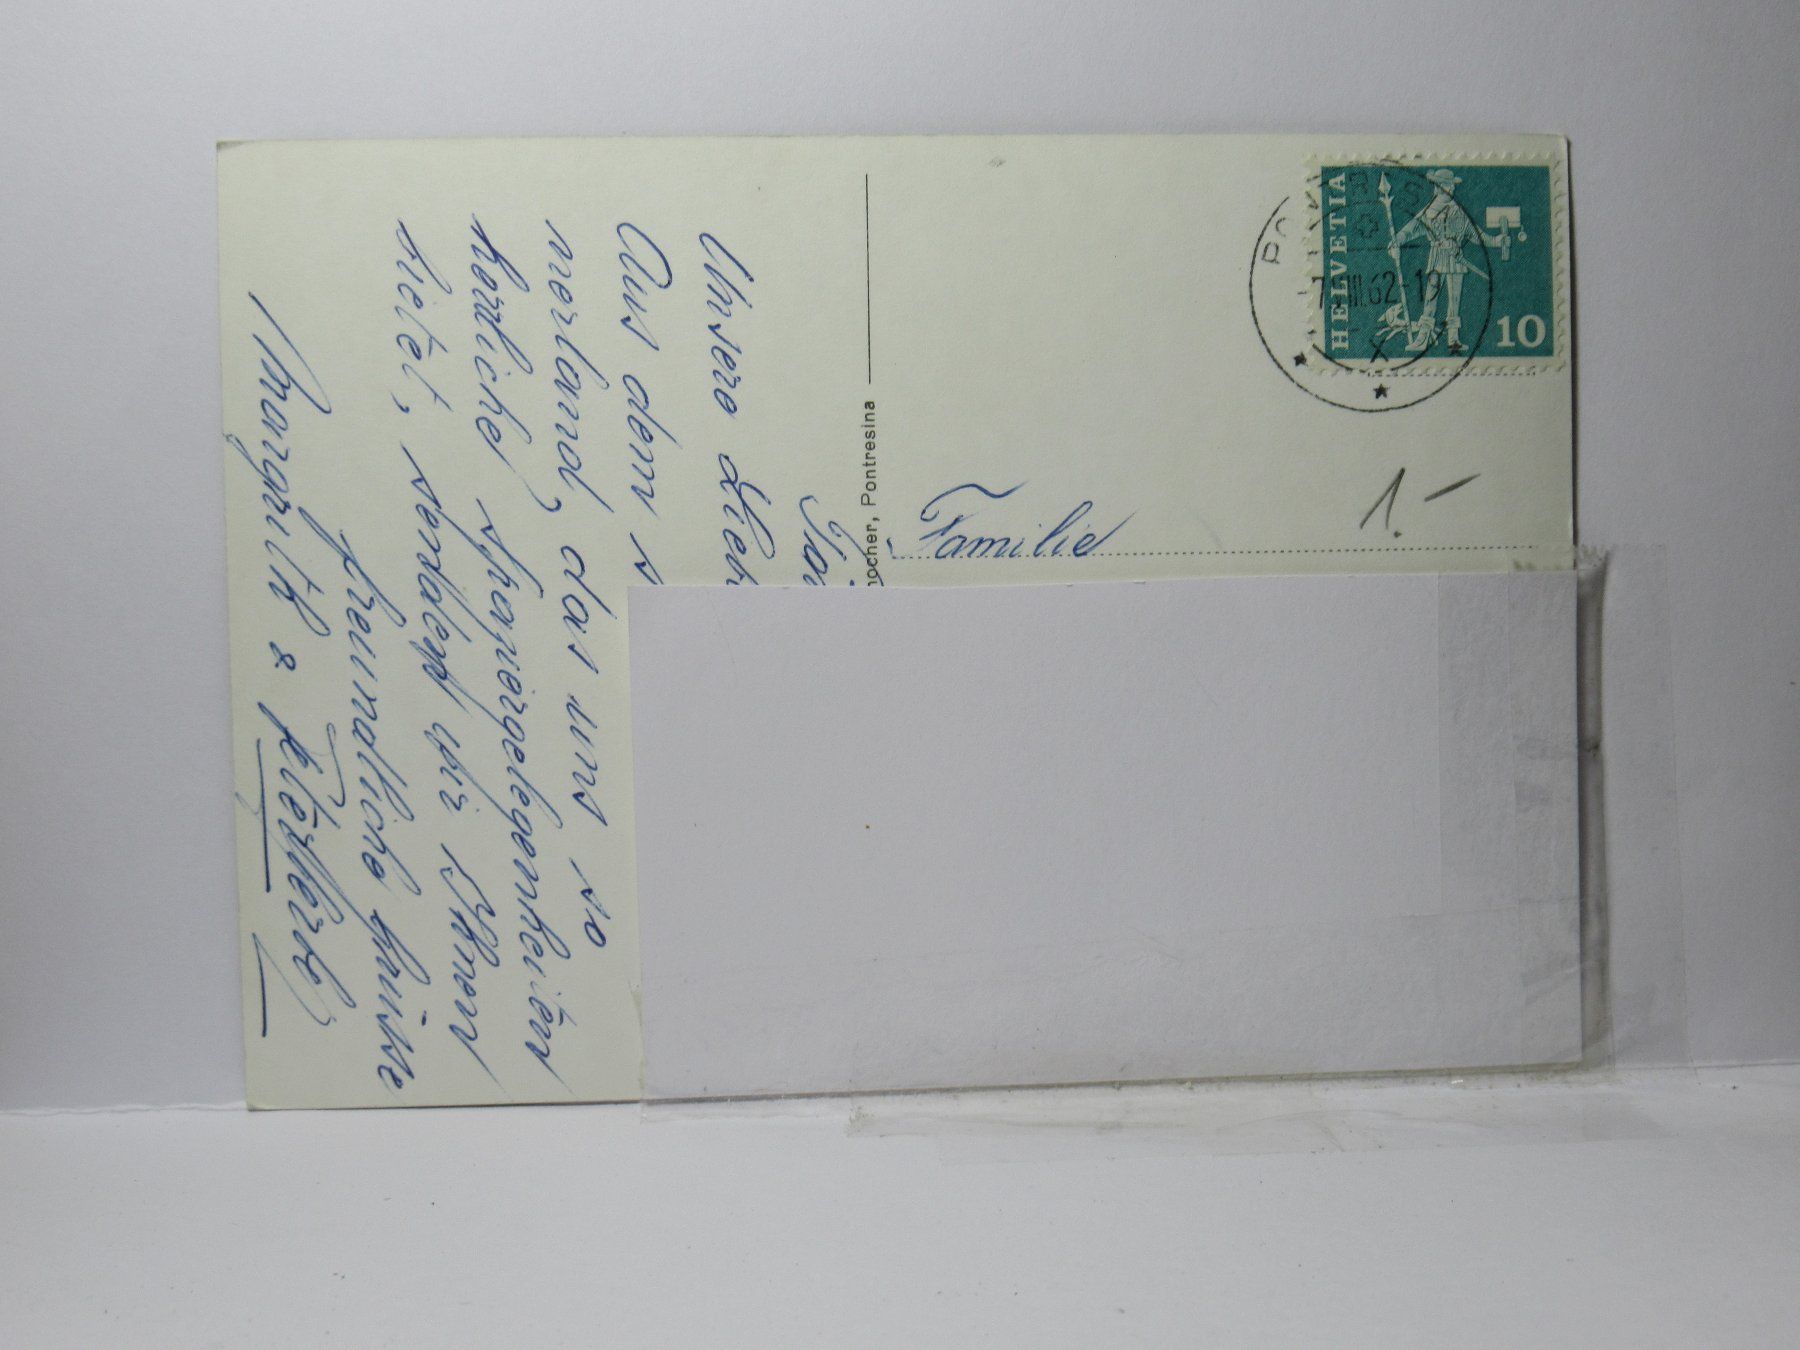 Unsere Lieb
Aus dem s
nerland, das uns so
herrliche Skanier gelegenheiten
bietet, senden wir Ihnen
freundliche Grüsse
Margrith &
ocher, Pontresina
Familie
1.-
HELVETIA
10
PONTRESINA
III.62-19